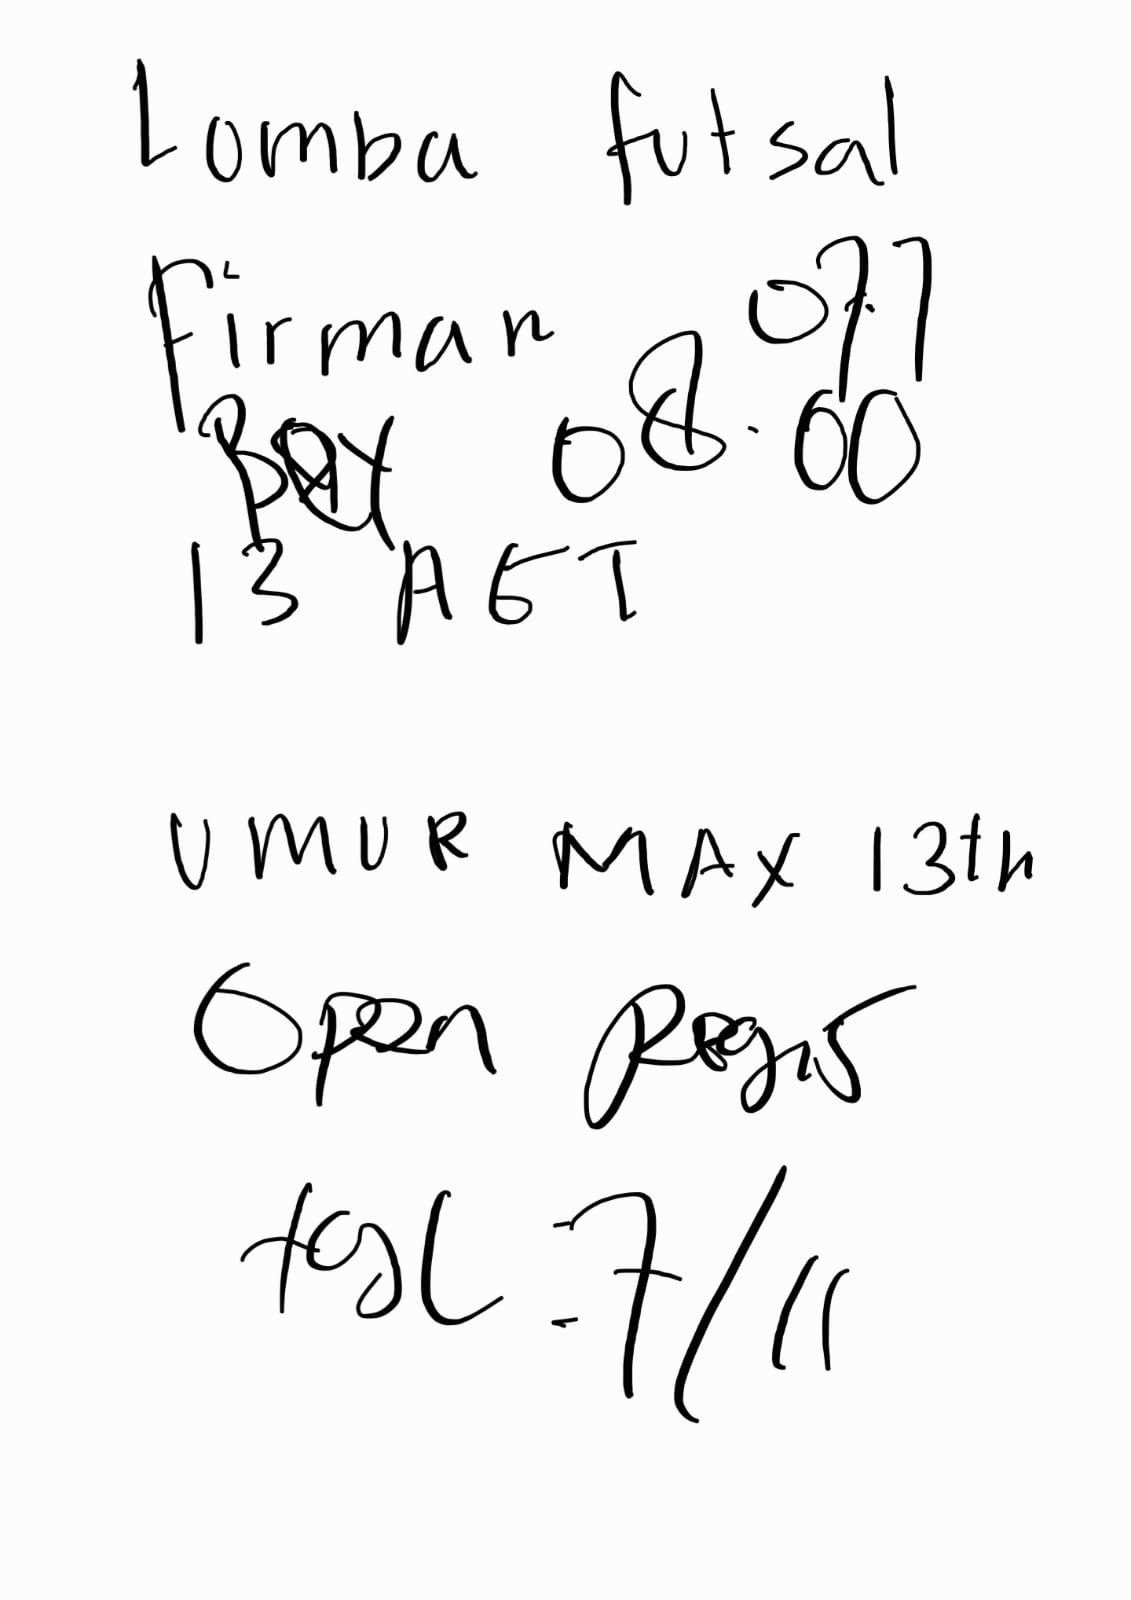 Lomba futsal
Firman 077
BOY 08.00
13 AET
UMUR MAX 13th
Open Regis
tgl : 7/11